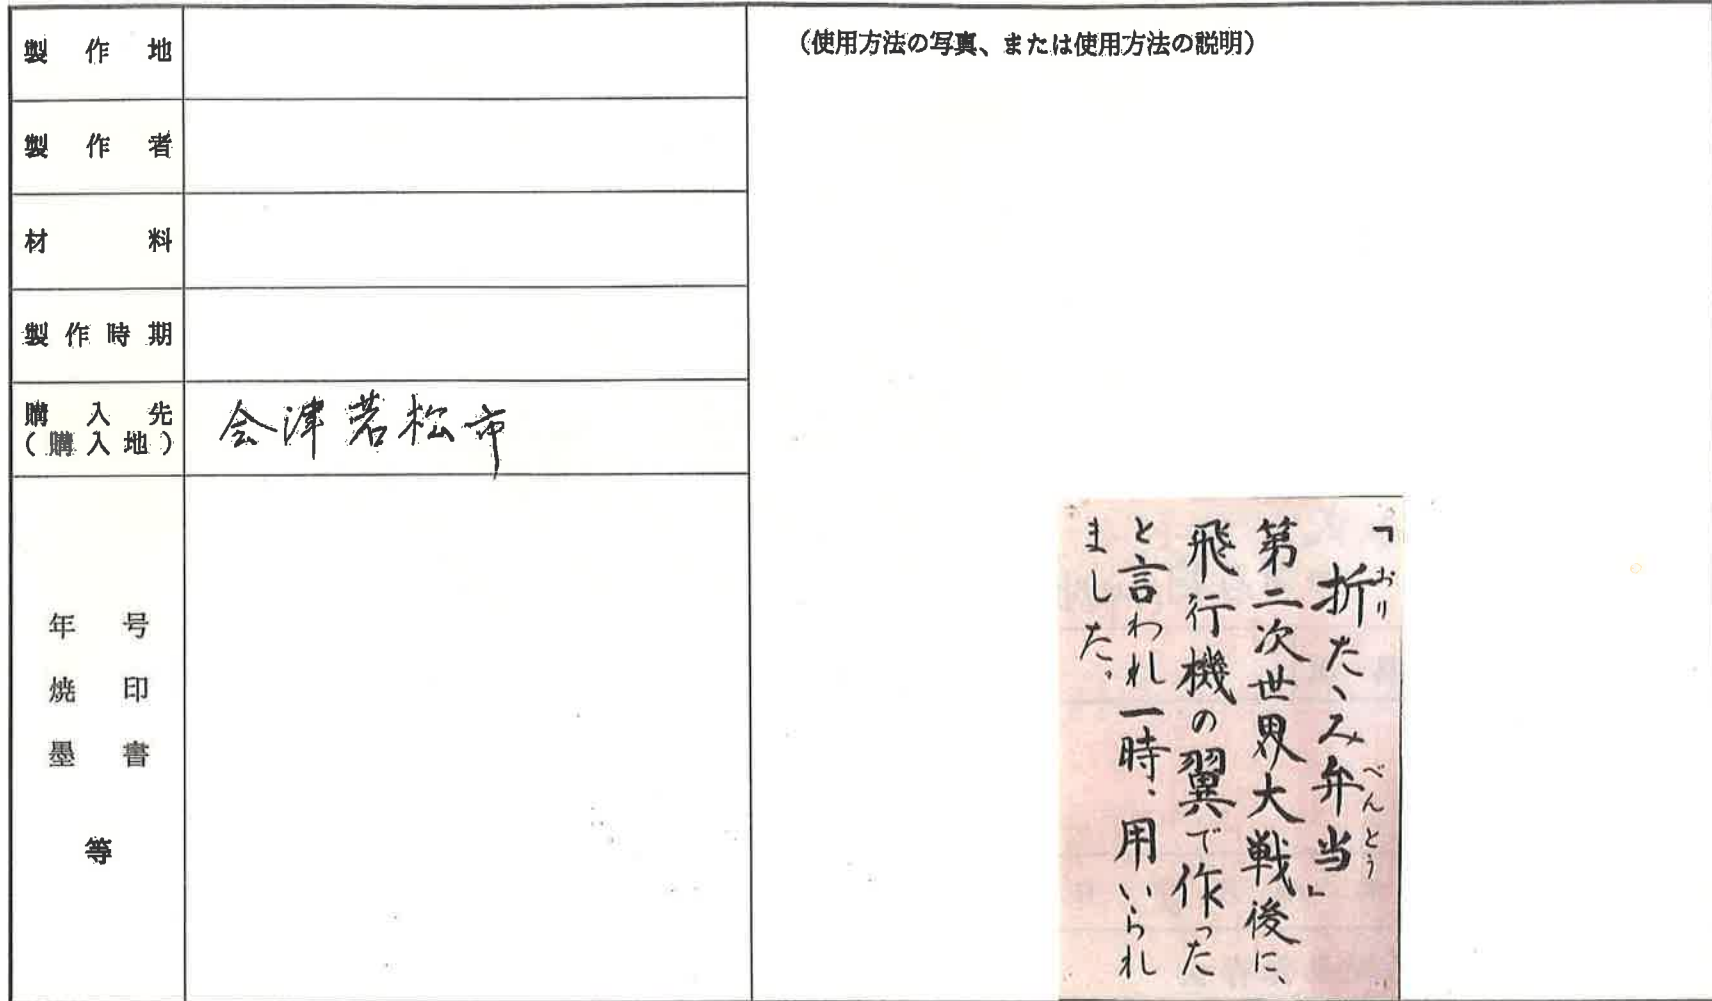 製作地
製作者
材料
製作時期
購入先
(購入地)
会津若松市
年号
焼印
墨書
等
(使用方法の写真、または使用方法の説明)
「折たゝみ弁当」
おり
べんとう
第二次世界大戦後に、
飛行機の翼で作った
と言われ一時、用いられ
ました。